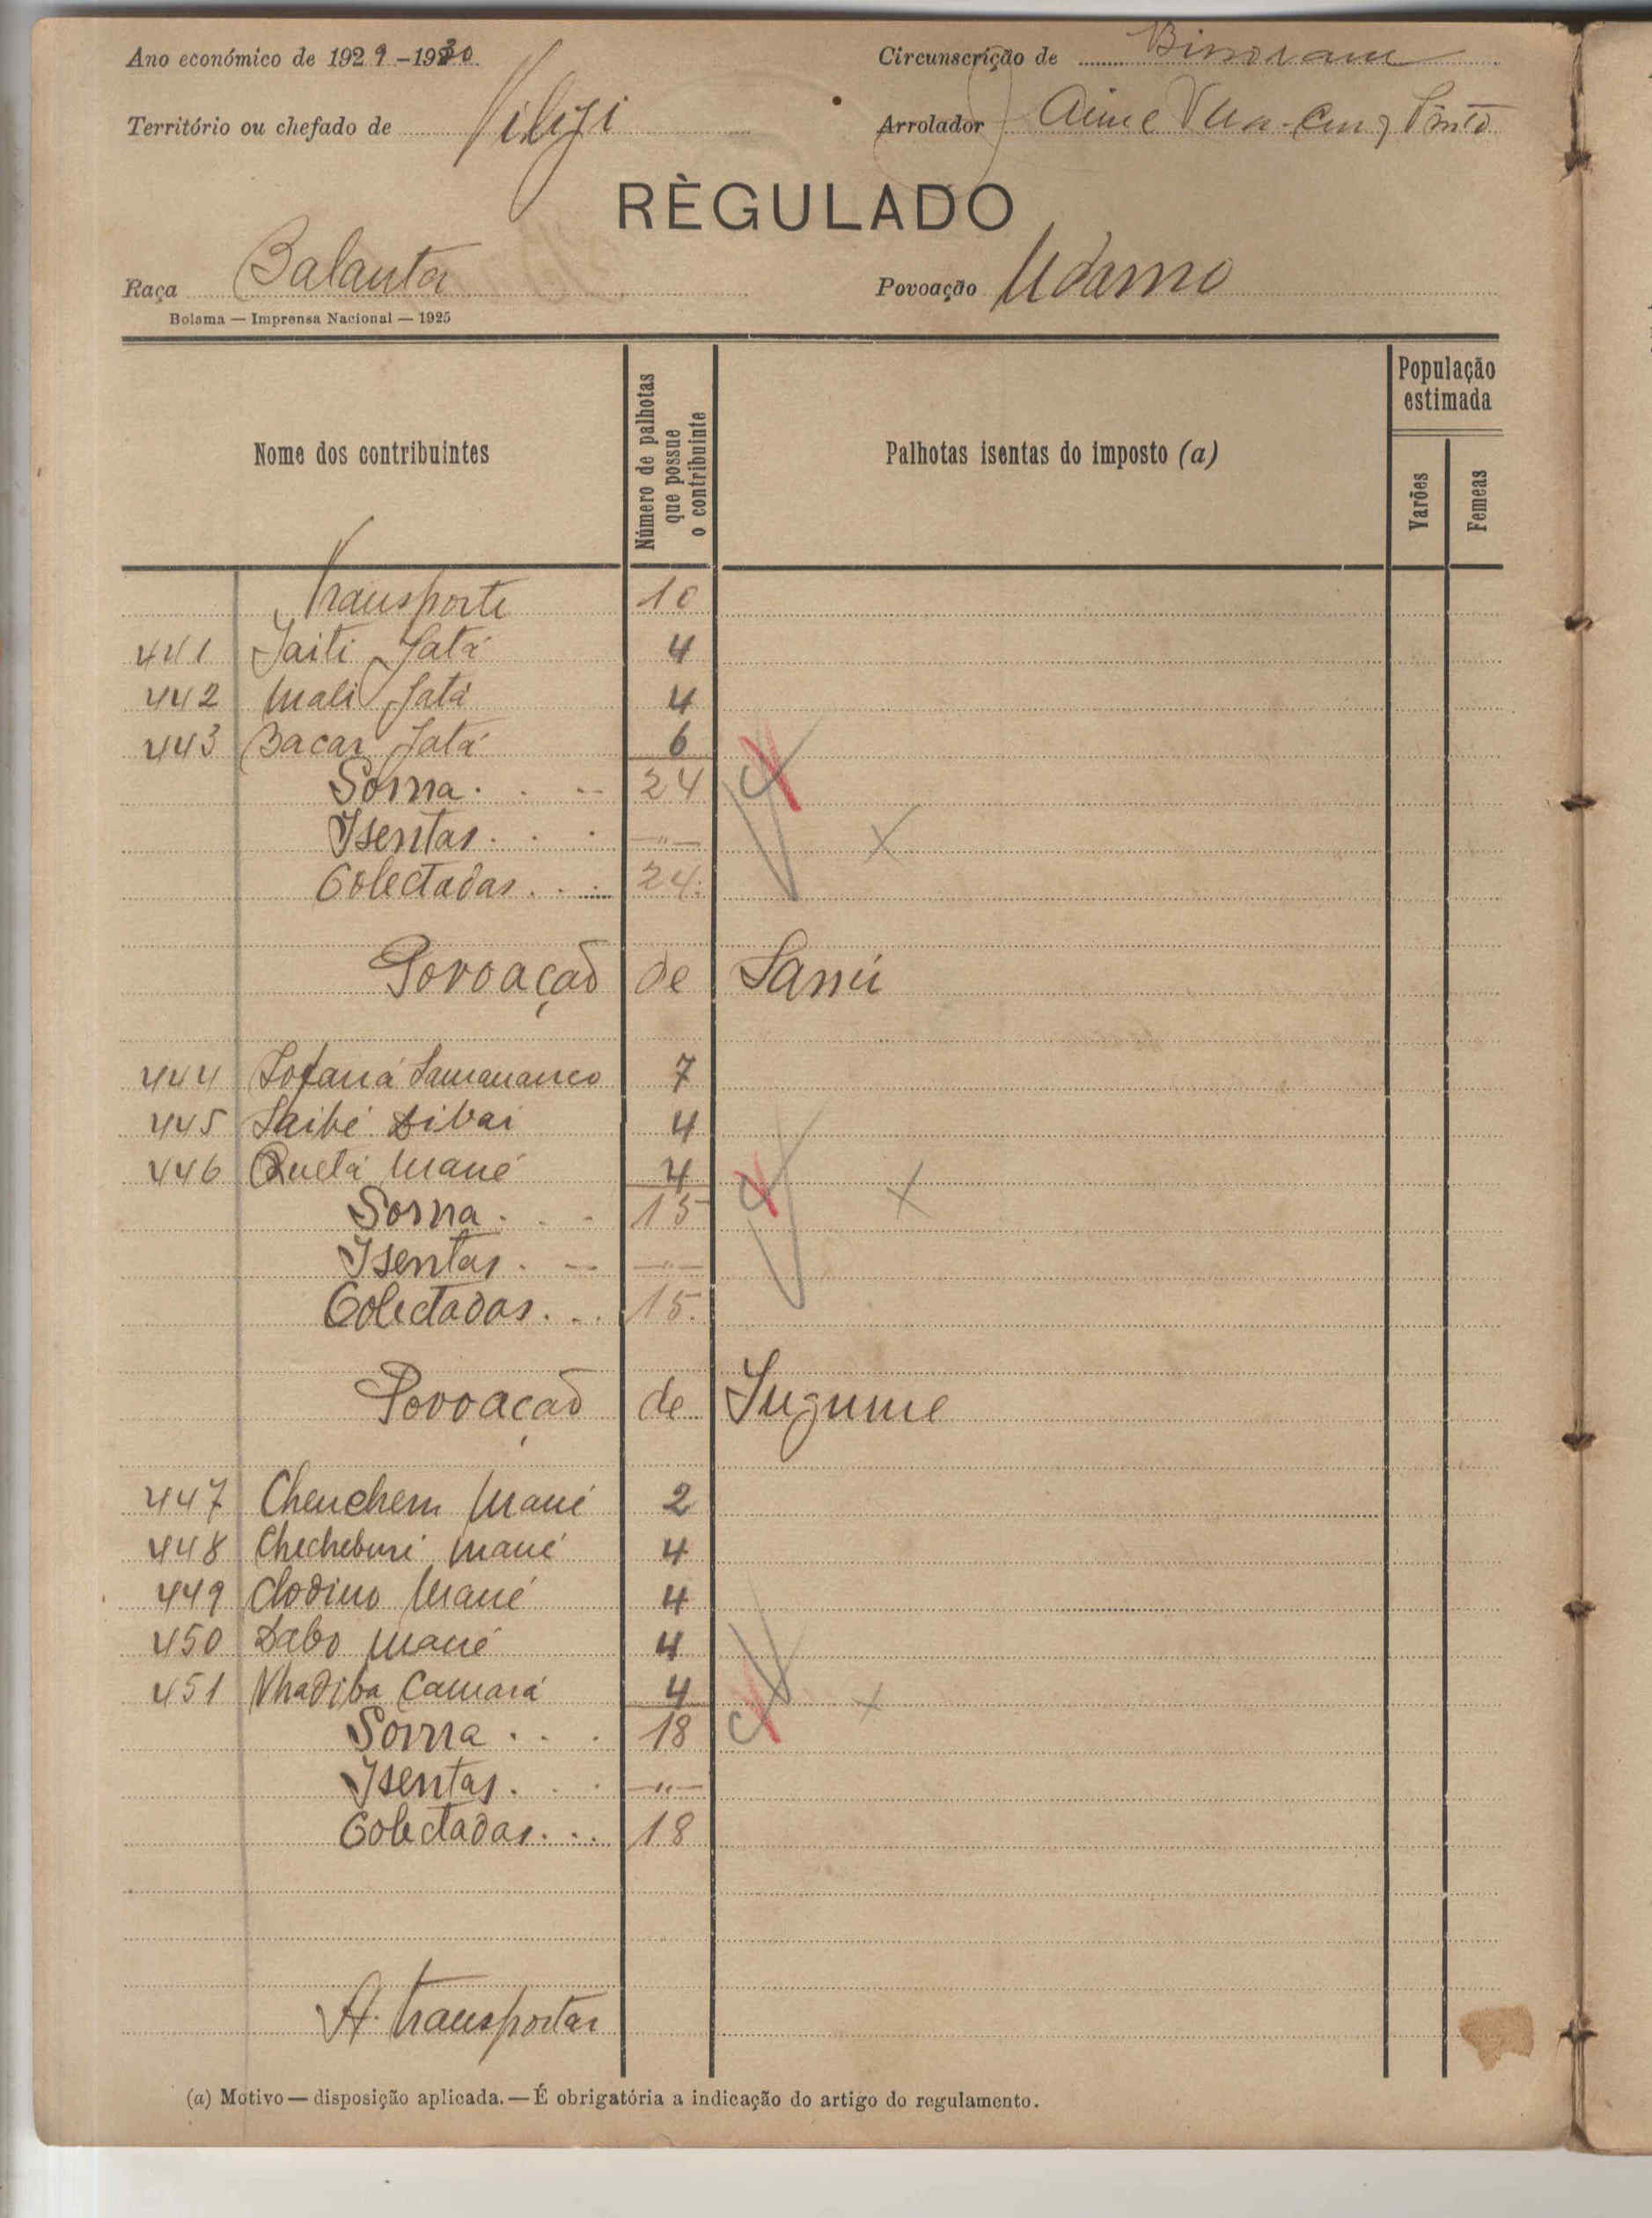 Ano económico de 1929-1930
Circunscrição de Bissoram
Território ou chefado de
Arrolador Pinto
RÈGULADO
Raça Balanta
Povoação Udamo
Bolama — Imprensa Nacional — 1925
Nome dos contribuintes
Número de palhotas que possue o contribuinte
Palhotas isentas do imposto (a)
População estimada
Varões
Femeas
Transporte 10
441 Jaiti Jatá 4
442 Mali Jatá 4
443 Bacar Jatá 6
Soma. . -- 24
Isentas. . . —"—
Colectadas. . . 24.
Povoação de Sanú
444 7
445 Saibé Dibai 4
446 Quetá Mané 4
Soma. . - 15
Isentas. — —"—
Colectadas. . . 15.
Povoação de Sugume
447 Chenchem Mané 2
448 Mané 4
449 Clodino Mané 4
450 Dabo Mané 4
451 Nhadiba Camará 4
Soma . . . 18
Isentas. . . —"—
Colectadas. . . 18
A transportar
(a) Motivo — disposição aplicada. — É obrigatória a indicação do artigo do regulamento.